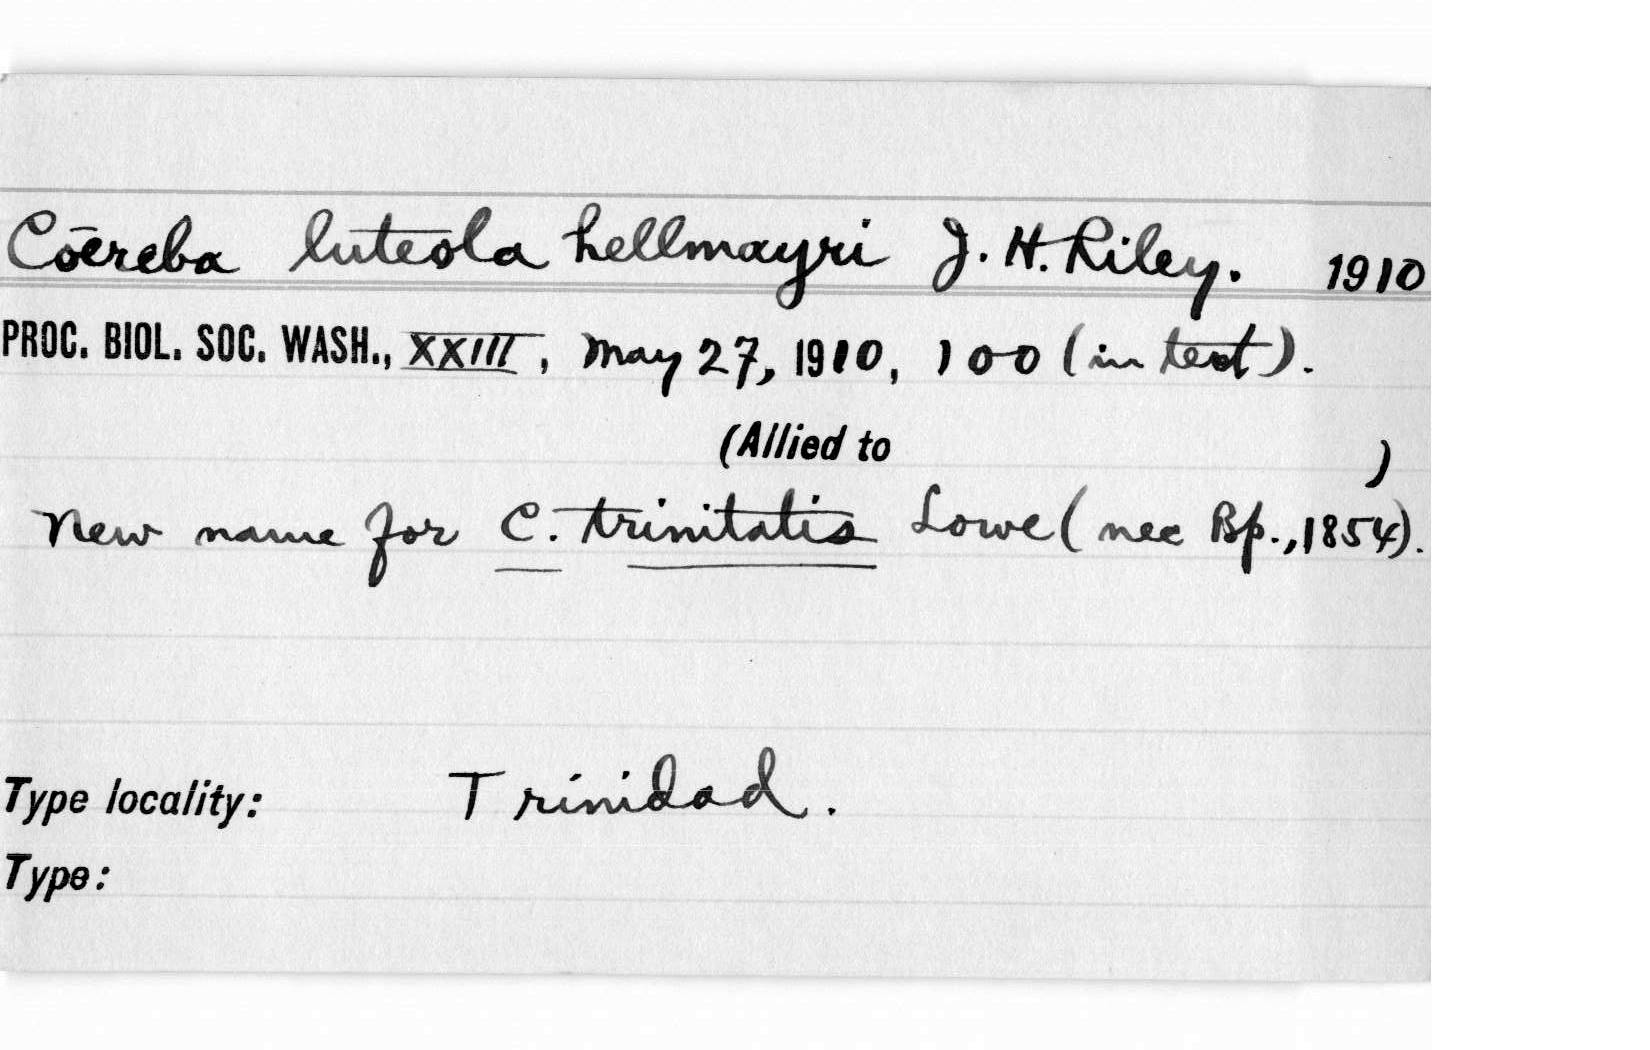 Cōereba luteola hellmayri J. H. Riley. 1910
PROC. BIOL. SOC. WASH., XXIII, May 27, 1910, 100 (in text).
(Allied to )
New name for C. trinitatis Lowe (nec Bp., 1854).
Type locality: Trinidad.
Type: